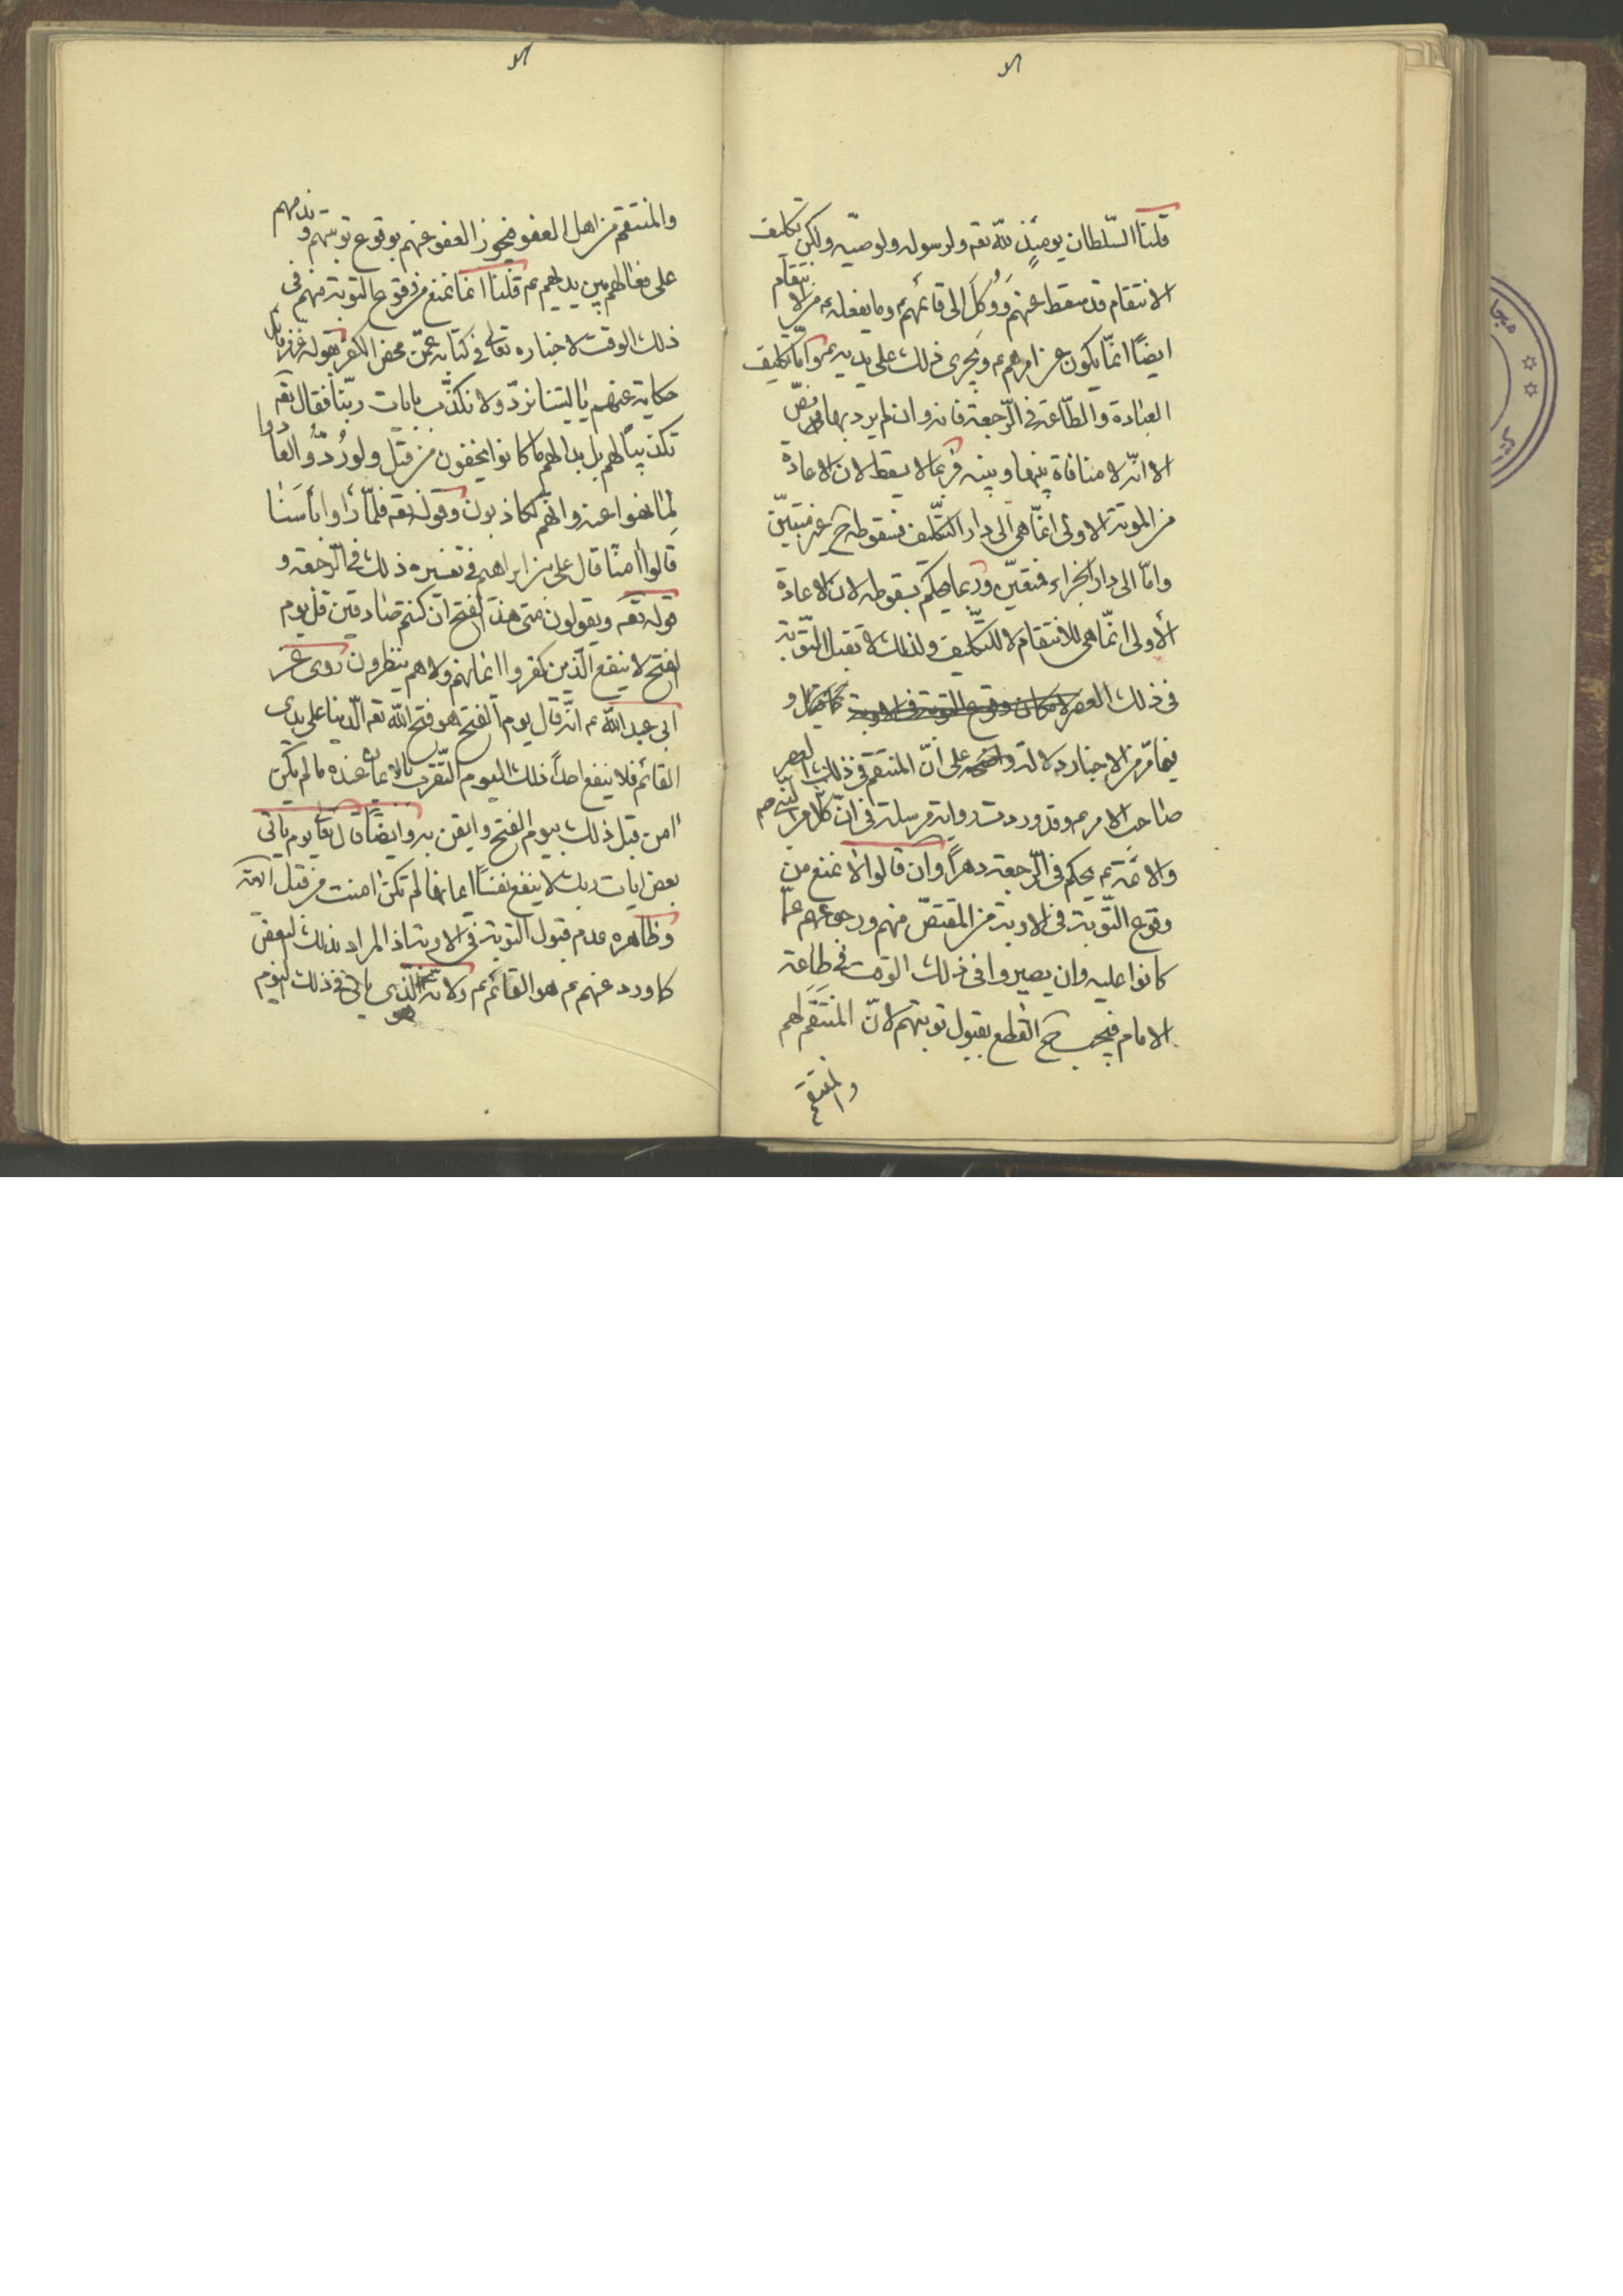 قلنا السّلطان يومئذٍ للّه تقه ولرسوله ولوصيّه ولكن تكليف
الانتقام قد سقط عنهم وَوُكلَ الى قائمهم وما يفعله من الانتقام
ايضًا انمّا يكون عن امرهم عم ويجرى ذلك على يديه عم وامّا تكليف
العبادة والطّاعة فى الرّجعة فانه وان لم يرد بها نصّ
الا انّه لا منافاة بينها وبينه فربما لا يسقط لان الاعادة
من الموتة الاولى انمّا هى الى دار التكّليف فسقوطه ح غير متبيّن
وامّا الى دار الجزاء فمتعيّن وربما يحكم بسقوطه لان الاعادة
الأولى انمّا هى للانتقام لا للتكّليف ولذلك لا تقبل التّوبة
فى ذلك العصر
فيما مّر من الاخبار دلالة واضحة على انّ المنتقم فى ذلك العصر
صاحب الامر عم وقد وردت رواية مرسلة فى انّ كلّا من النبى صم
والائمّة عم يحكم فى الرّجعة دهرًا وان قالوا لا نمنع من
وقوع التّوبة فى الاوبة من المقتصّ منهم ورجوعهم عمّا
كانوا عليه وان يصيروا فى ذلك الوقت فى طاعة
الامام فيجب ح القطع بقبول توبتهم لانّ المنتَقَم لهم
والمنتقم
والمنتقم من اهل العفو فيجوز العفو عنهم بوقوع توبتهم وندمهم
على فعالهم بين يديهم عم قلنا انما نمنع من وقوع التوبة منهم فى
ذلك الوقت لاخباره تعالى فى كتابه عمّن محض الكفر بقوله عزّ من قائل
حكاية عنهم يا ليتنا نردّ ولا نكذّب بايات ربّنا فقال تقه
تكذيبًا لهم بل بدا لهم ما كانوا يخفون من قبل ولو رُدُّوا لعادوا
لِما نهوا عنه وانّهم لكاذبون وقوله تقه فلمّا رأوا بأسَنا
قالوا امنّا قال على بن ابراهيم فى تفسيره ذلك فى الرّجعة و
قوله تقه ويقولون متى هذا الفتح ان كنتم صادقين قل يوم
الفتح لا ينفع الّذين كفروا ايمانهم ولا هم ينظرون روى عن
ابى عبد اللّه عم انّه قال يوم الفتح هو فتح اللّه تقه الدّنيا على يدى
القائم فلا ينفع احدًا ذلك اليوم التّقرّب بالايمان عنده ما لم يكن
امن قبل ذلك بيوم الفتح وايقن به وايضًا قال تعا يوم ياتى
بعض ايات ربك لا ينفع نفسًا ايمانها لم تكن امنت من قبل الاية
وظاهره عدم قبول التوبة فى الاوبة اذ المراد بذلك البعض
كما ورد عنهم عم هو القائم عم ولانه هو الّذى ياتى فى ذلك اليوم